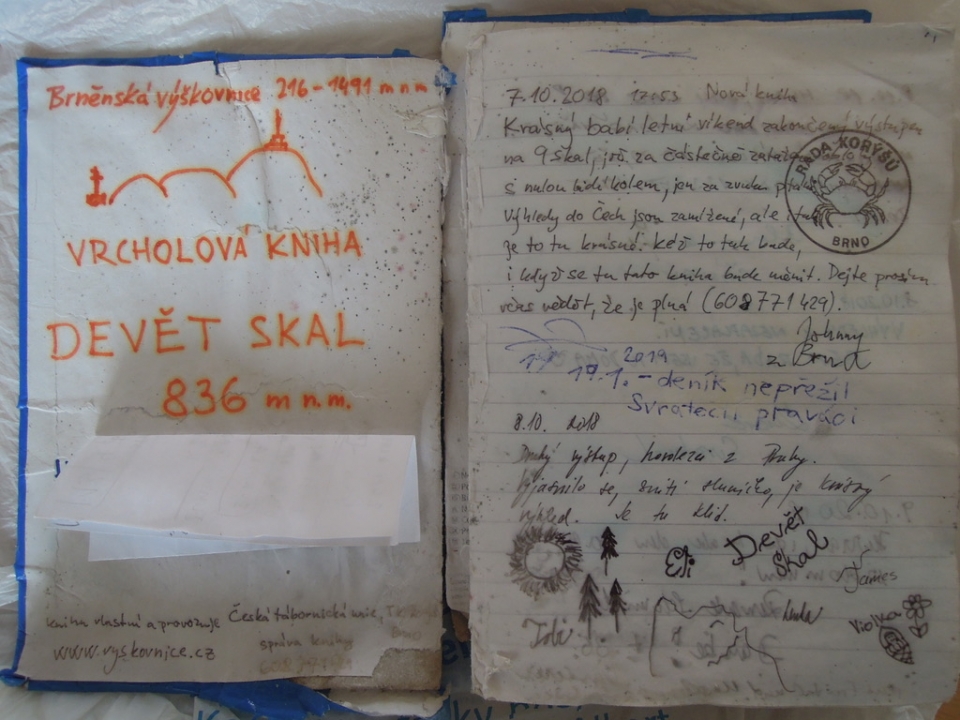 Brněnská výškovnice 216-1491 m n m
VRCHOLOVÁ KNIHA
DEVĚT SKAL
836 m n.m.
kniha vlastní a provozuje Česká tábornická unie, T.K.
Brno
správa knihy
www.vyskovnice.cz
7.10.2018 17:53 Nová kniha
Krásný babí letní víkend zakončený výstupem
na 9 skal, již za částečně
s nulou lidí kolem, jen za zvuku
Výhledy do Čech jsou zamlžené, ale i tak
je to tu krásné. Kéž to tak bude,
i když se tu tato kniha bude měnit. Dejte prosím
vědět, že je plná (608771429).
Johnny
z Brna
RADA KORÝŠŮ
BRNO
2019
19.1. - deník nepřežil
Svratečtí praváci
8.10. 2018
Druhý výstup, horolezci z Prahy.
Vyjasnilo se, svítí sluníčko, je krásný
výhled. Je tu klid.
Eli
Devět
skal
James
Tobi
Violka